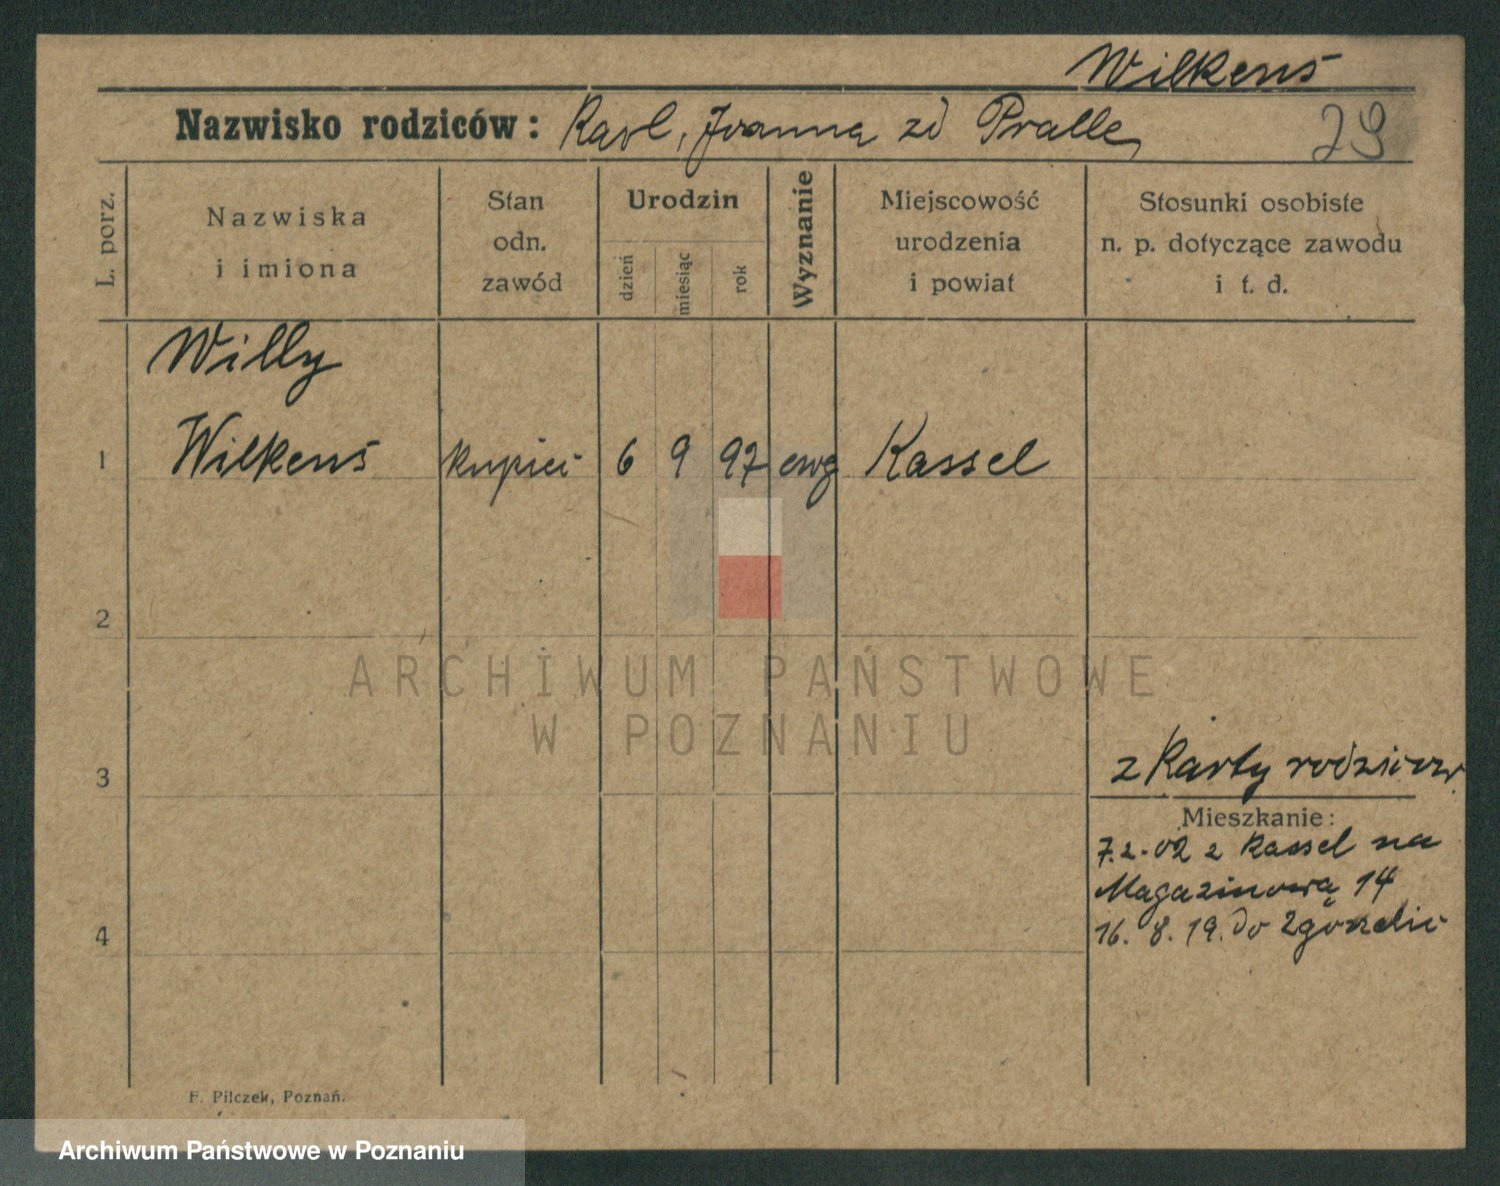 Wilkens
Nazwisko rodziców: Karl, Joanna zd Pralle
29
L. porz.
Nazwiska
i imiona
Stan
odn.
zawód
Urodzin
dzień
miesiąc
rok
Wyznanie
Miejscowość
urodzenia
i powiat
Stosunki osobiste
n. p. dotyczące zawodu
i t. d.
Willy
1 Wilkens kupiec 6 9 97 ewg Kassel
2
3
z karty rodziców
Mieszkanie:
7.2.02 z Kassel na
Magazinową 14
4
16. 8. 19. do Zgorzelic
F. Pilczek, Poznań.
ARCHIWUM PAŃSTWOWE
W POZNANIU
Archiwum Państwowe w Poznaniu